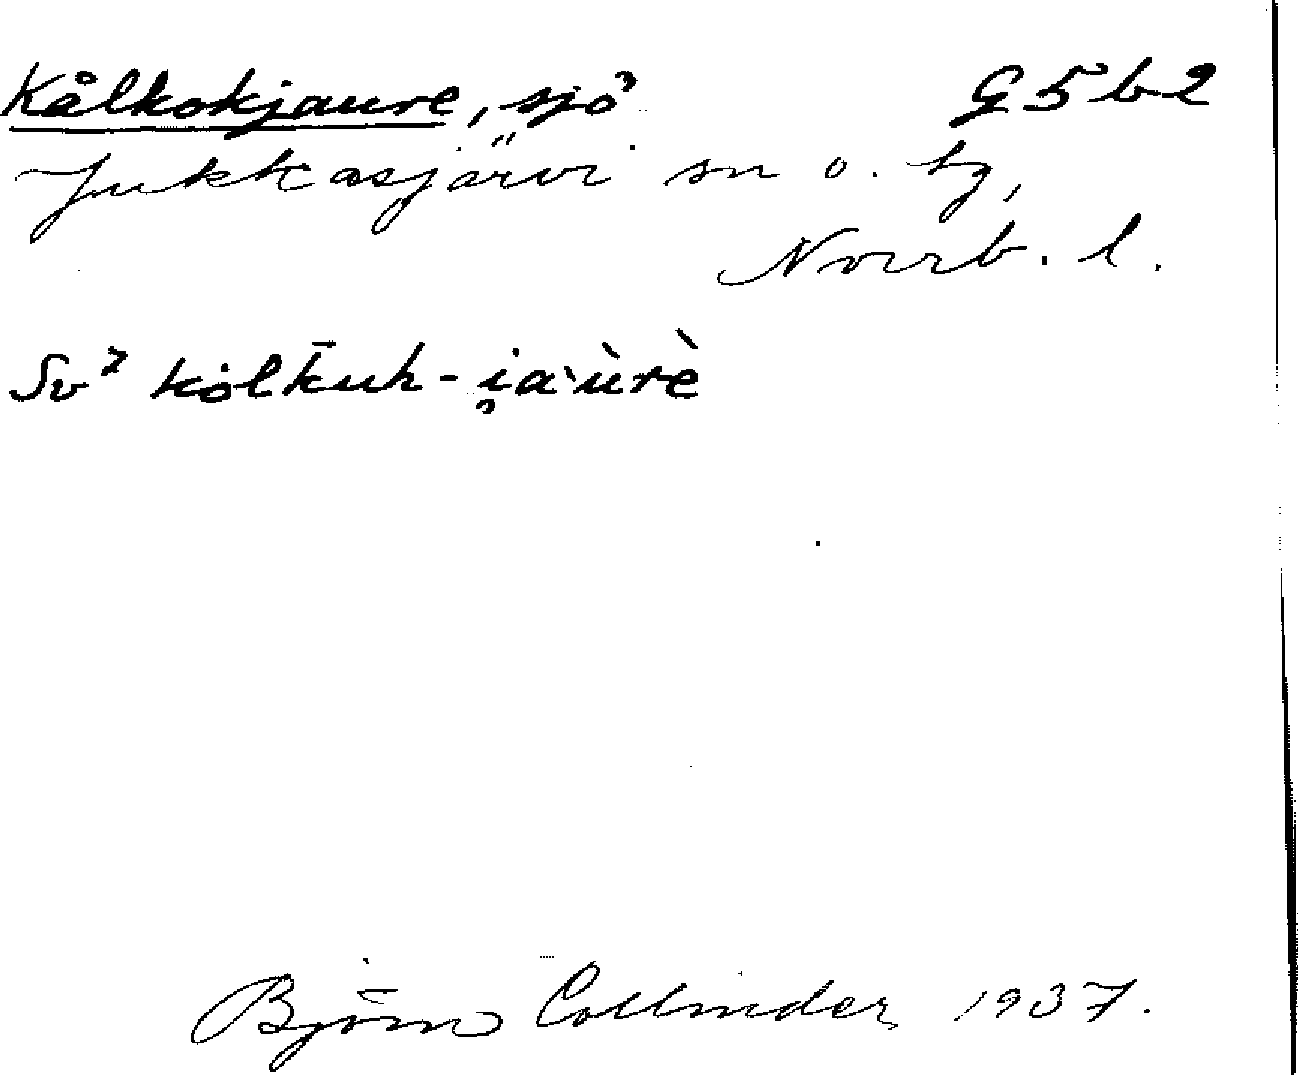 Kålkokjaure, sjö G5b2
Jukkasjärvi sn o. tg,
Norrb. l.
Sv² kȯlk̄uh-i̯a`ùrè
Björn Collinder 1937.